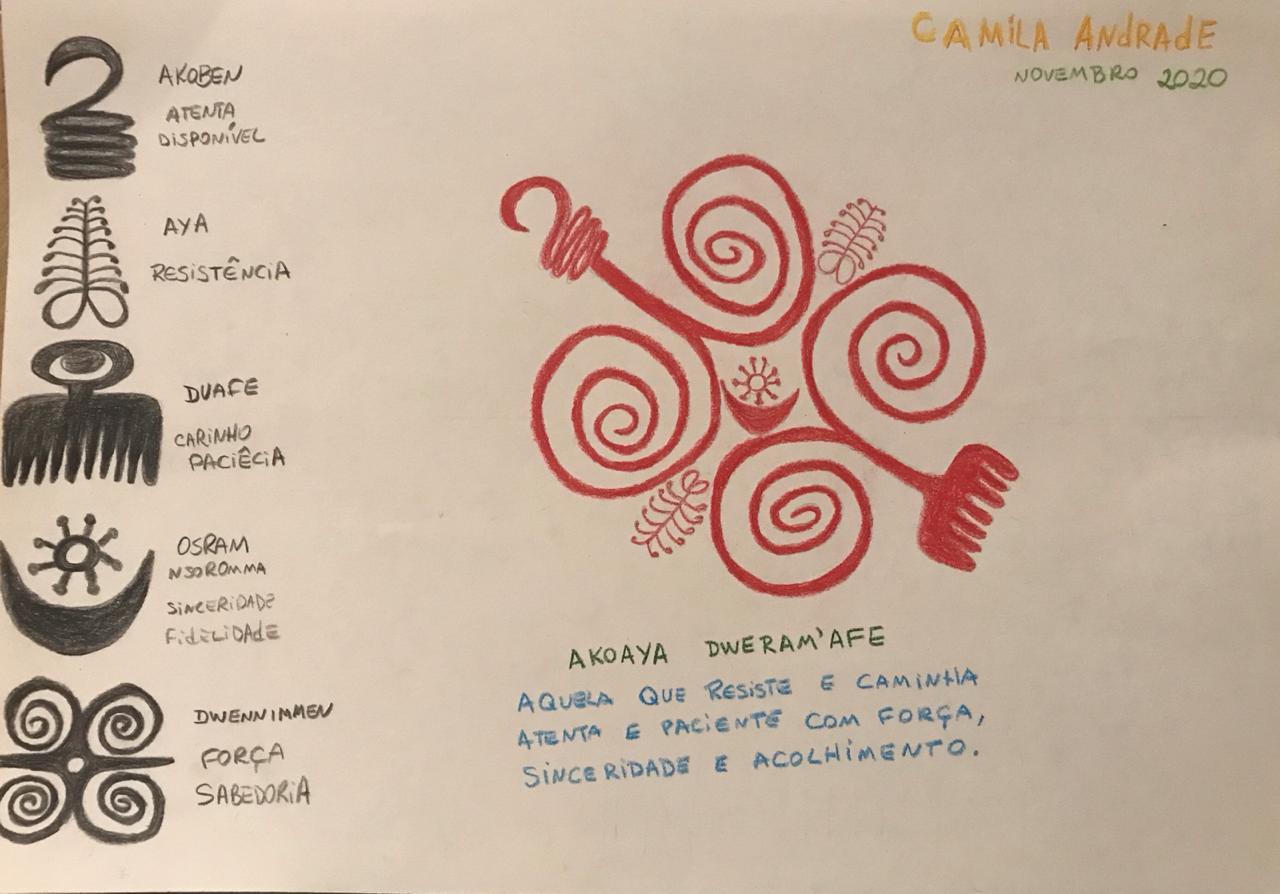 CAMILA ANDRADE
NOVEMBRO 2020
AKOBEN
ATENTA
DISPONÍVEL
AYA
RESISTÊNCIA
DUAFE
CARINHO
PACIÊCIA
OSRAM
NSOROMMA
SINCERIDADE
FIDELIDADE
DWENNIMMEN
FORÇA
SABEDORIA
AKOAYA DWERAM'AFE
AQUELA QUE RESISTE E CAMINHA
ATENTA E PACIENTE COM FORÇA,
SINCERIDADE E ACOLHIMENTO.